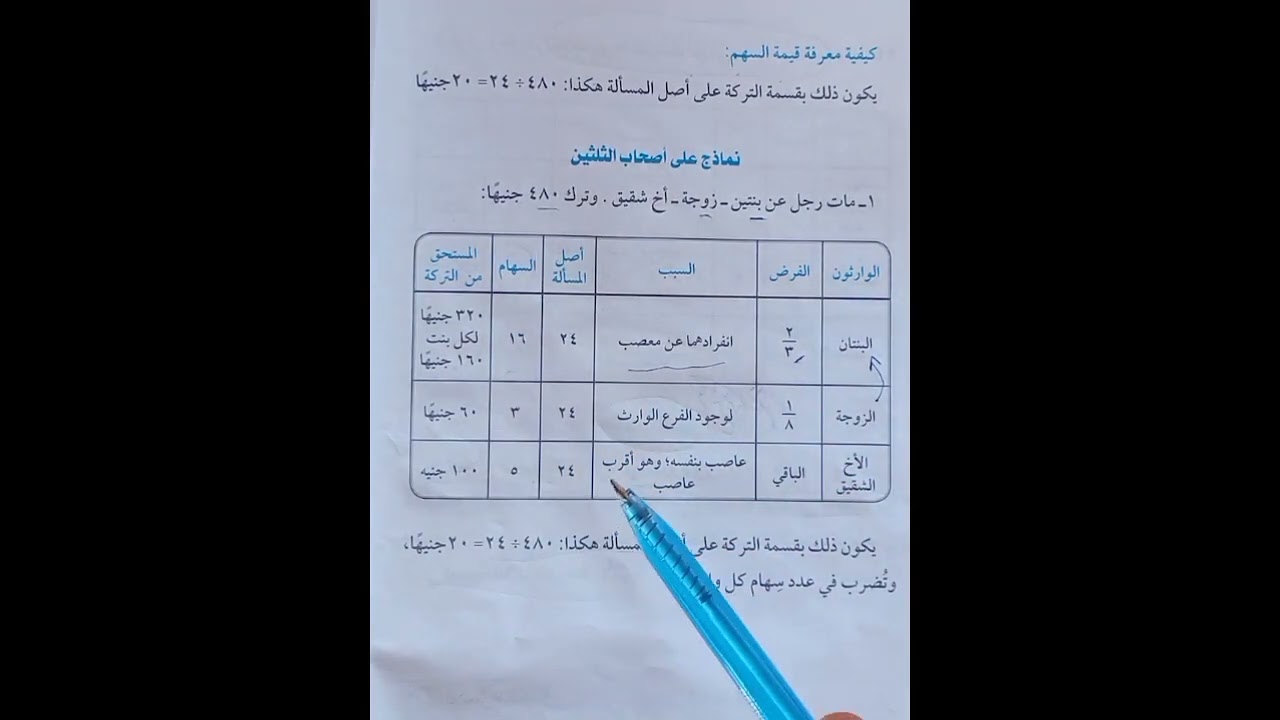 كيفية معرفة قيمة السهم:
يكون ذلك بقسمة التركة على أصل المسألة هكذا: ٤٨٠ ÷ ٢٤ = ٢٠ جنيهًا
نماذج على أصحاب الثلثين
١ـ مات رجل عن بنتين ـ زوجة ـ أخ شقيق . وترك ٤٨٠ جنيهًا:
الوارثون الفرض السبب أصل المسألة السهام المستحق من التركة
البنتان ٢/٣ انفرادهما عن معصب ٢٤ ١٦ ٣٢٠ جنيهًا لكل بنت ١٦٠ جنيهًا
الزوجة ١/٨ لوجود الفرع الوارث ٢٤ ٣ ٦٠ جنيهًا
الأخ الشقيق الباقي عاصب بنفسه؛ وهو أقرب عاصب ٢٤ ٥ ١٠٠ جنيه
يكون ذلك بقسمة التركة على هكذا: ٤٨٠ ÷ ٢٤ = ٢٠ جنيهًا،
وتُضرب في عدد سِهام كل